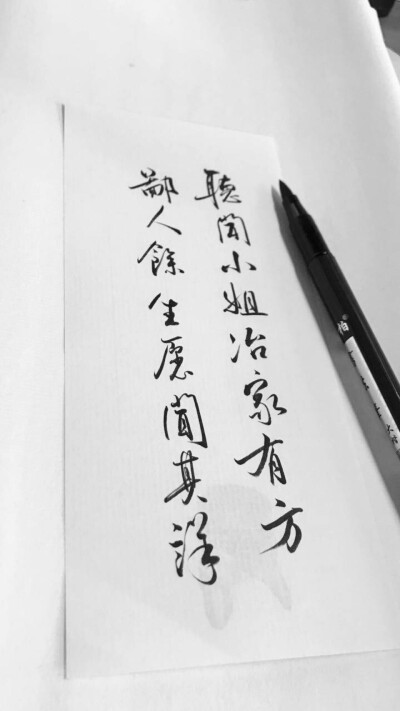 聽聞小姐冶家有方
鄙人餘生愿聞其详